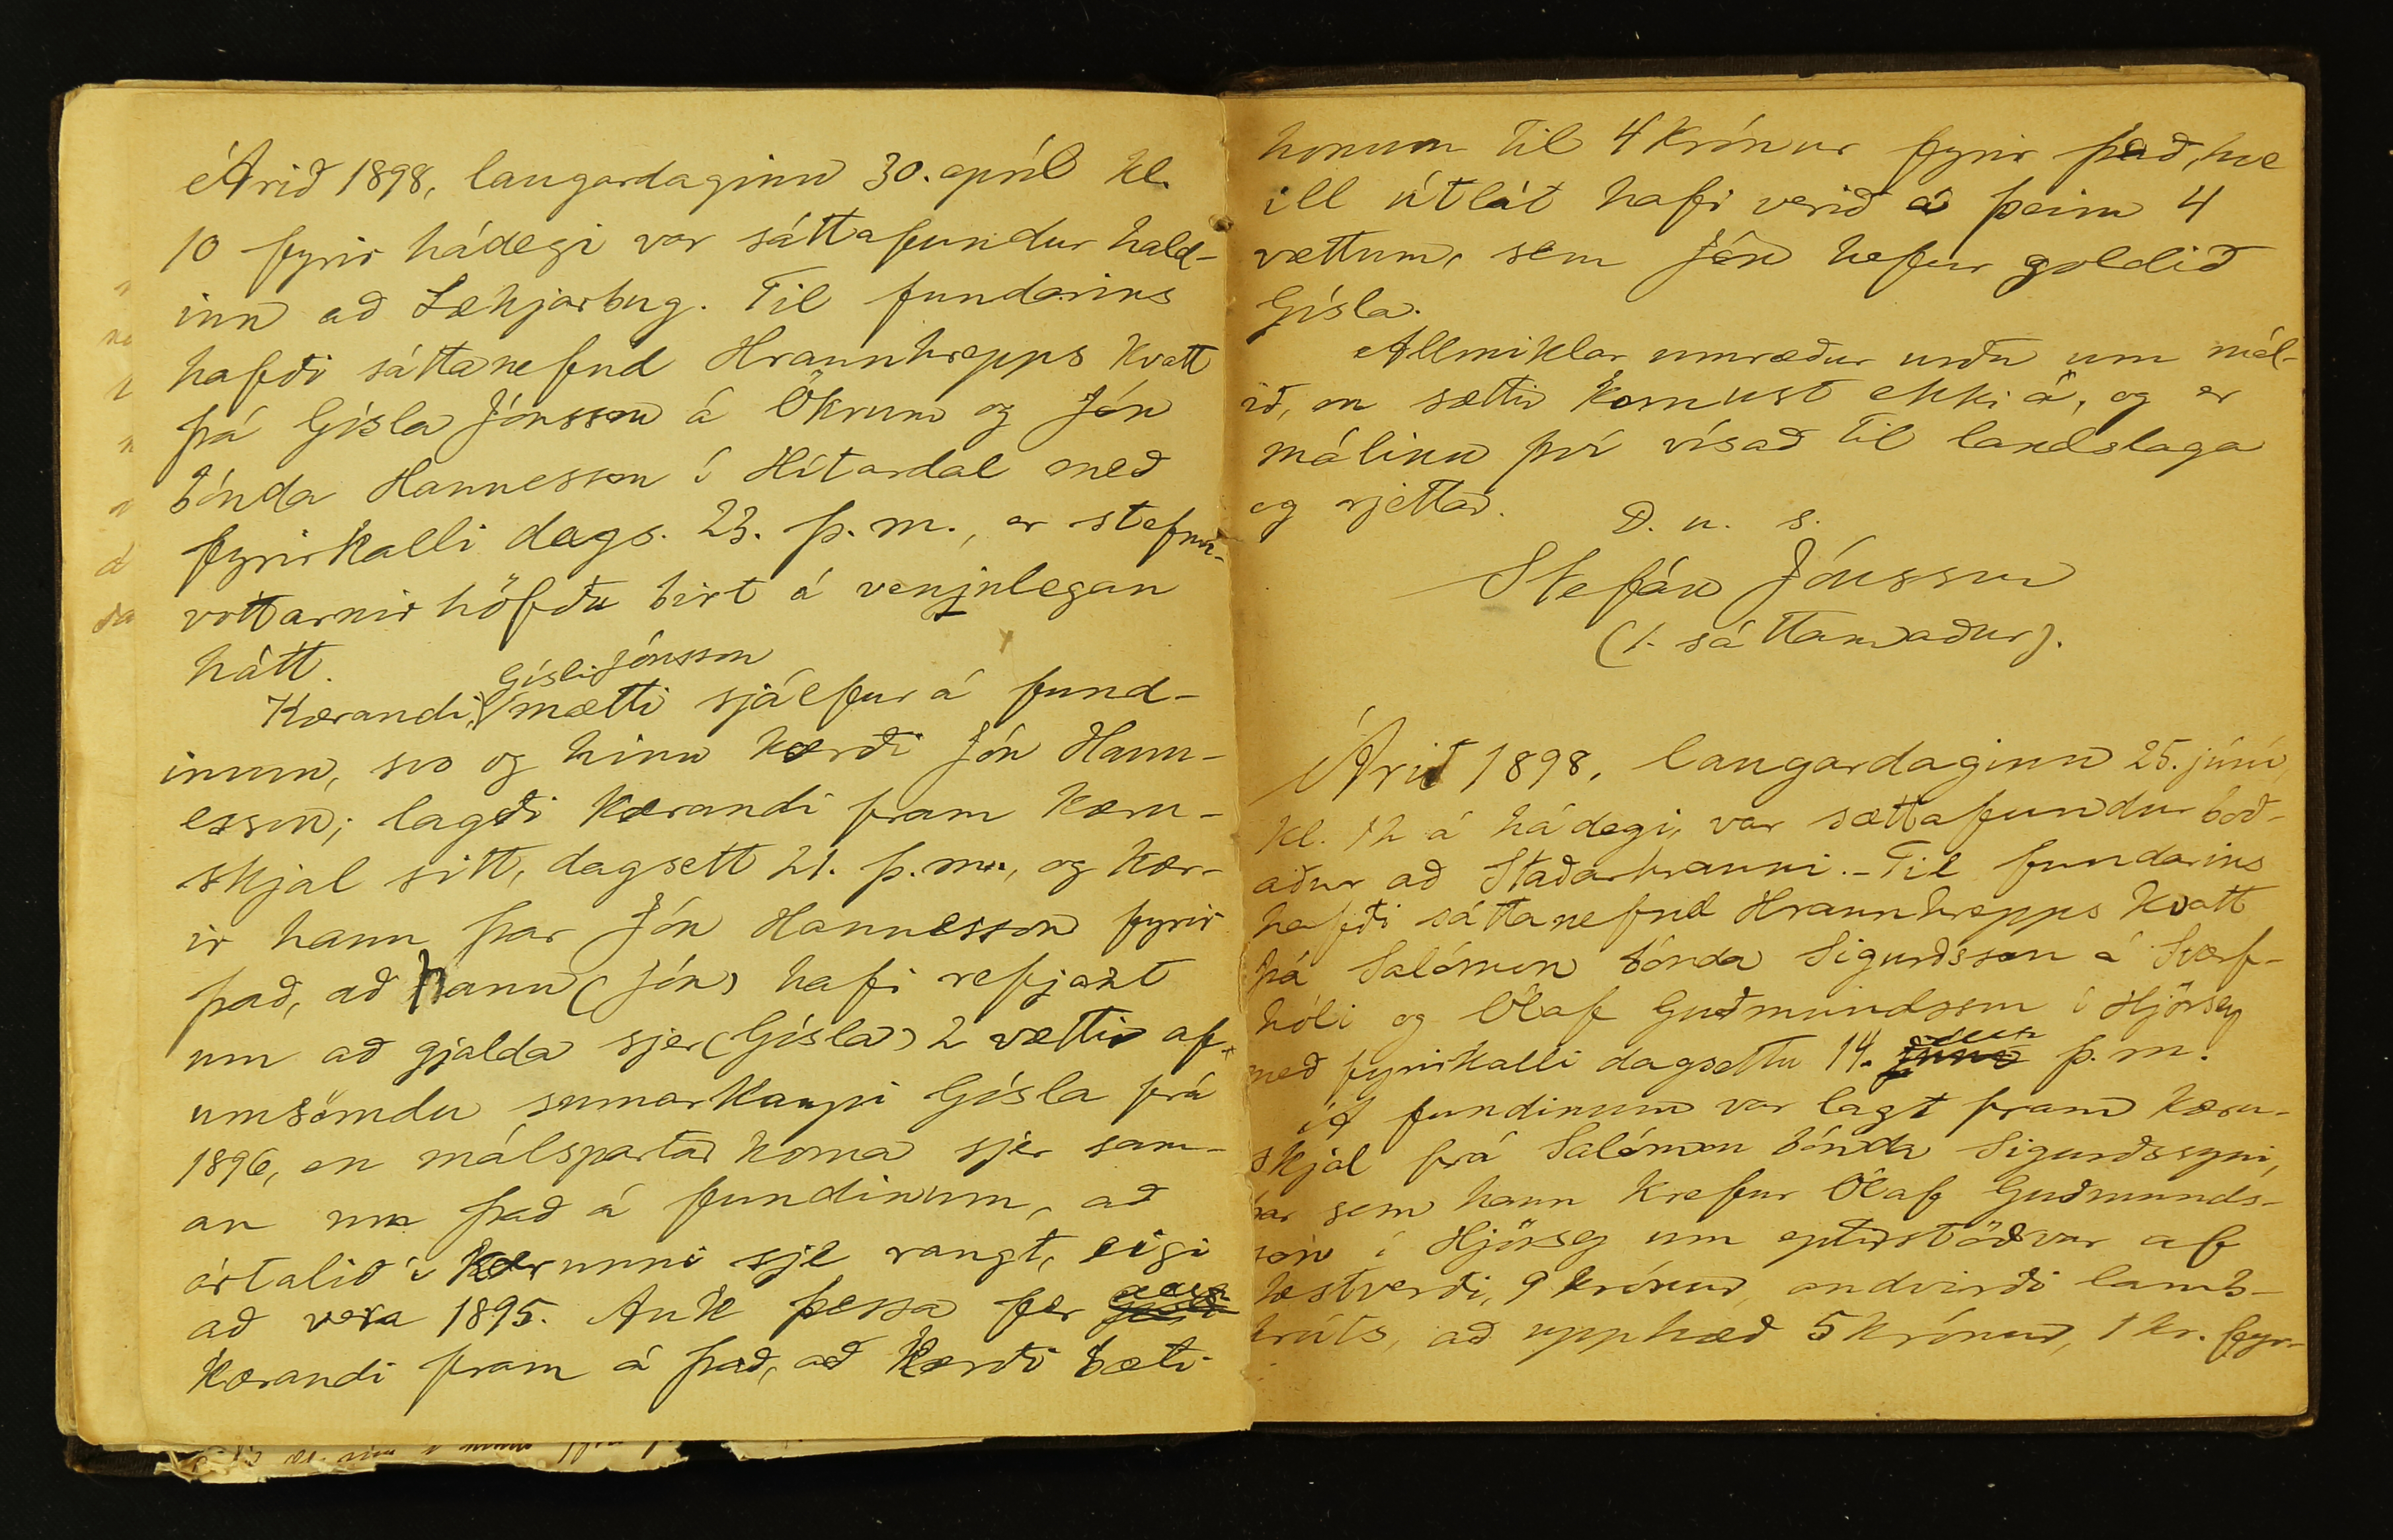 Árið 1898, laugardaginn 30. apríl kl.
10 fyrir hádegi var sáttafundur hald-
inn að Lækjarbug. Til fundarins
hafði sáttanefnd Hraunhrepps kvatt
þá Gísla Jónsson á Ökrum og Jón
bónda Hannesson í Hítardal með
fyrirkalli dags. 23. þ. m., er stefnu-
vottarnir höfðu birt á venjulegan
hátt.
Gísli Jónsson
Kærandi, mætti sjálfur á fund-
inum, svo og hinn kærði Jón Hann-
esson; lagði kærandi fram kæru-
skjal sitt, dagsett 21. þ. m., og kær-
ir hann þar Jón Hannesson fyrir
það, að hann (Jón) hafi refjast
um að gjalda sjer (Gísla) 2 vættir af
umsömdu sumarkaupi Gísla frá
1896, en málspartar koma sjer sam-
an um það á fundinum, að
ártalið í kærunni sje rangt, eigi
að vera 1895. Auk þessa fer
kærandi fram á það, að kærði bæti
honum til 4 krónur fyrir það, hve
ill útlát hafi verið á þeim 4
vættum, sem Jón hefur goldið
Gísla.
Allmiklar umræður urðu um mál-
ið, en sættir komust ekki á, og er
málinu því vísað til landslaga
og rjettar.
D. u. s.
Stefán Jónsson
(1. sáttamaður).
Árið 1898, laugardaginn 25. júní,
kl. 12 á hádegi, var sættafundur boð-
aður að Staðarhrauni. - Til fundarins
hafði sáttanefnd Hraunhrepps kvatt
þá Salómon bónda Sigurðsson á Svarf-
hóli og Ólaf Guðmundsson í Hjörsey
með fyrirkalli dagsettu 14. þ. m.
Á fundinum var lagt fram kæru-
skjal frá Salómon bónda Sigurðssyni,
þar sem hann krefur Ólaf Guðmunds-
son í Hjörsey um eptirstöðvar af
hestverði, 9 krónur, andvirði lamb-
hrúts, að upphæð 5 krónur, 1 kr. fyr-